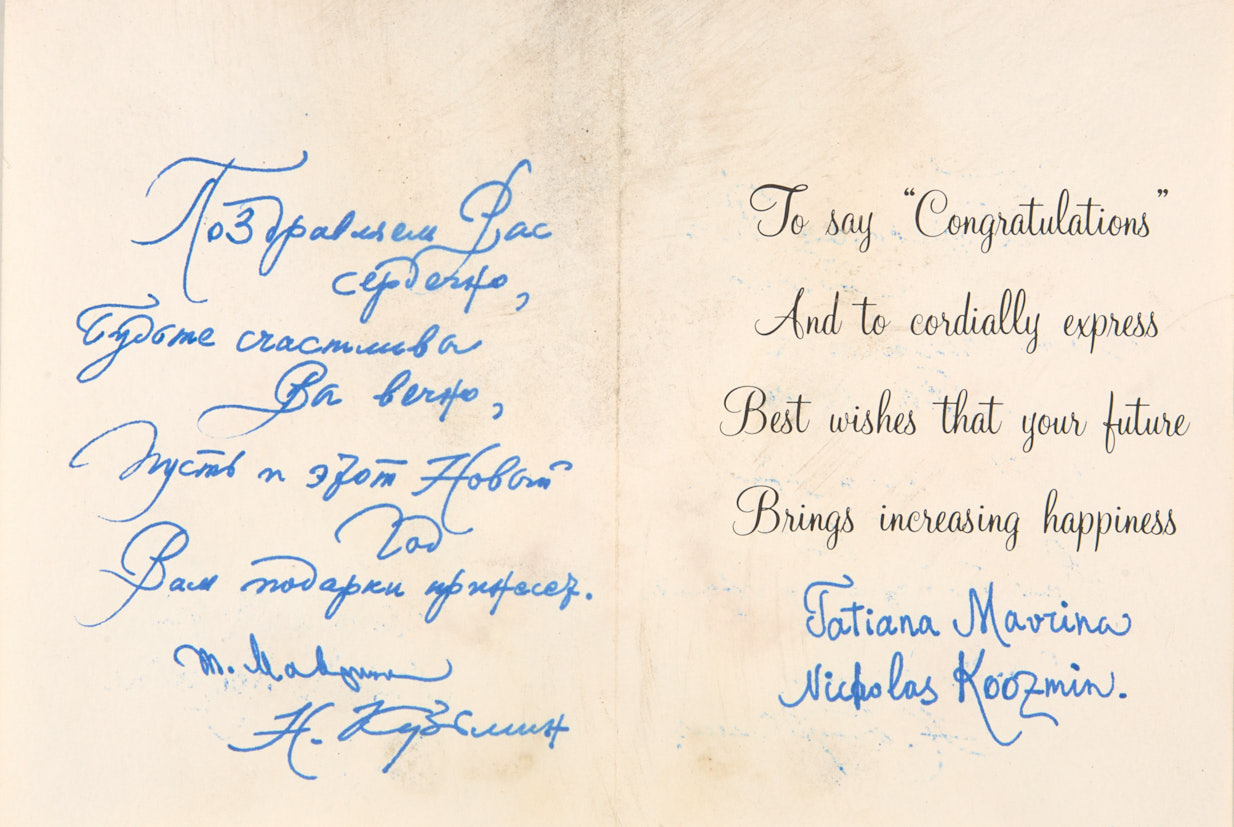 Поздравляем Вас
сердечно,
Будьте счастлива
Вы вечно,
Пусть и этот Новый
Год
Вам подарки принесет.
Т. Маврина
Н. Кузьмин
To say “Congratulations”
And to cordially express
Best wishes that your future
Brings increasing happiness
Tatiana Mavrina
Nickolas Koozmin.